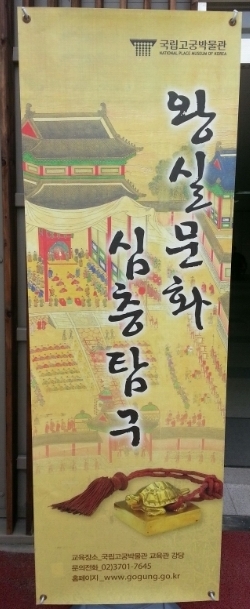 국립고궁박물관
NATIONAL PLACE MUSEUM OF KOREA
왕실문화
심층탐구
교육장소_국립고궁박물관 교육관 강당
문의전화_02)3701-7645
홈페이지_www.gogung.go.kr